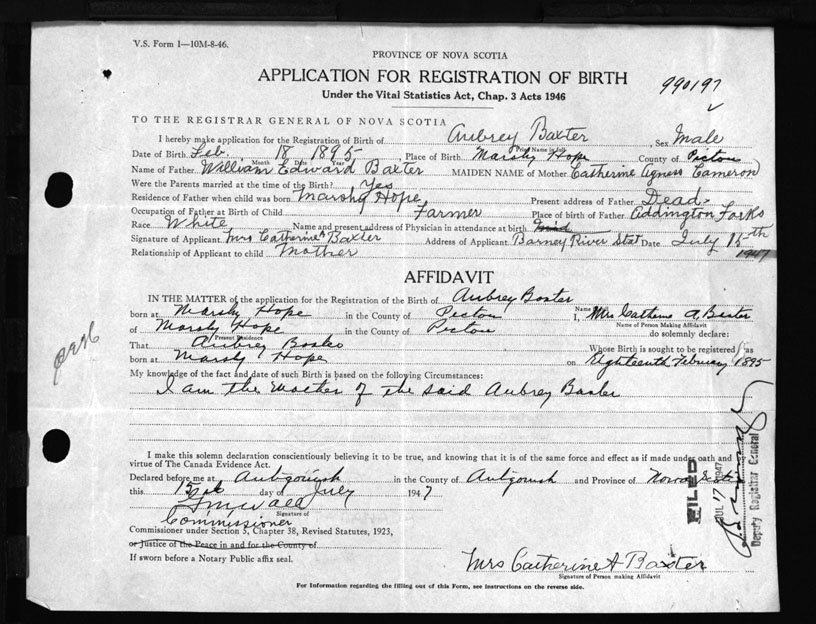 V.S. Form 1—10M-8-46.
PROVINCE OF NOVA SCOTIA
APPLICATION FOR REGISTRATION OF BIRTH
990197
Under the Vital Statistics Act, Chap. 3 Acts 1946
TO THE REGISTRAR GENERAL OF NOVA SCOTIA
I hereby make application for the Registration of Birth of Aubrey Baxter Sex Male
Print Name in full
Date of Birth Feb. 18 1895 Place of Birth Marshy Hope County of Pictou
Month Date Year
Name of Father William Edward Baxter MAIDEN NAME of Mother Catherine Agness Cameron
Were the Parents married at the time of the Birth? Yes
Residence of Father when child was born Marshy Hope Present address of Father Dead
Occupation of Father at Birth of Child Farmer Place of birth of Father Addington Forks
Race White Name and present address of Physician in attendance at birth
Signature of Applicant Mrs Catherine A Baxter Address of Applicant Barney River Stat Date July 15th
1947
Relationship of Applicant to child Mother
AFFIDAVIT
IN THE MATTER of the application for the Registration of the Birth of Aubrey Baxter
born at Marshy Hope in the County of Pictou Name I, Mrs Catherine A Baxter
Name of Person Making Affidavit
of Marshy Hope in the County of Pictou do solemnly declare:
Present Residence
That Aubrey Baxter Whose Birth is sought to be registered was
born at Marshy Hope on Eighteenth February 1895
My knowledge of the fact and date of such Birth is based on the following Circumstances:
I am the Mother of the said Aubrey Baxter
I make this solemn declaration conscientiously believing it to be true, and knowing that it is of the same force and effect as if made under oath and
virtue of The Canada Evidence Act.
Declared before me at Antigonish in the County of Antigonish and Province of Nova Scotia
this 15th day of July 1947
Signature of
Commissioner
Commissioner under Section 5, Chapter 38, Revised Statutes, 1923,
or Justice of the Peace in and for the County of
If sworn before a Notary Public affix seal.
Mrs Catherine A Baxter
Signature of Person making Affidavit
For Information regarding the filling out of this Form, see instructions on the reverse side.
FILED
JUL 17 1947
Deputy Registrar General